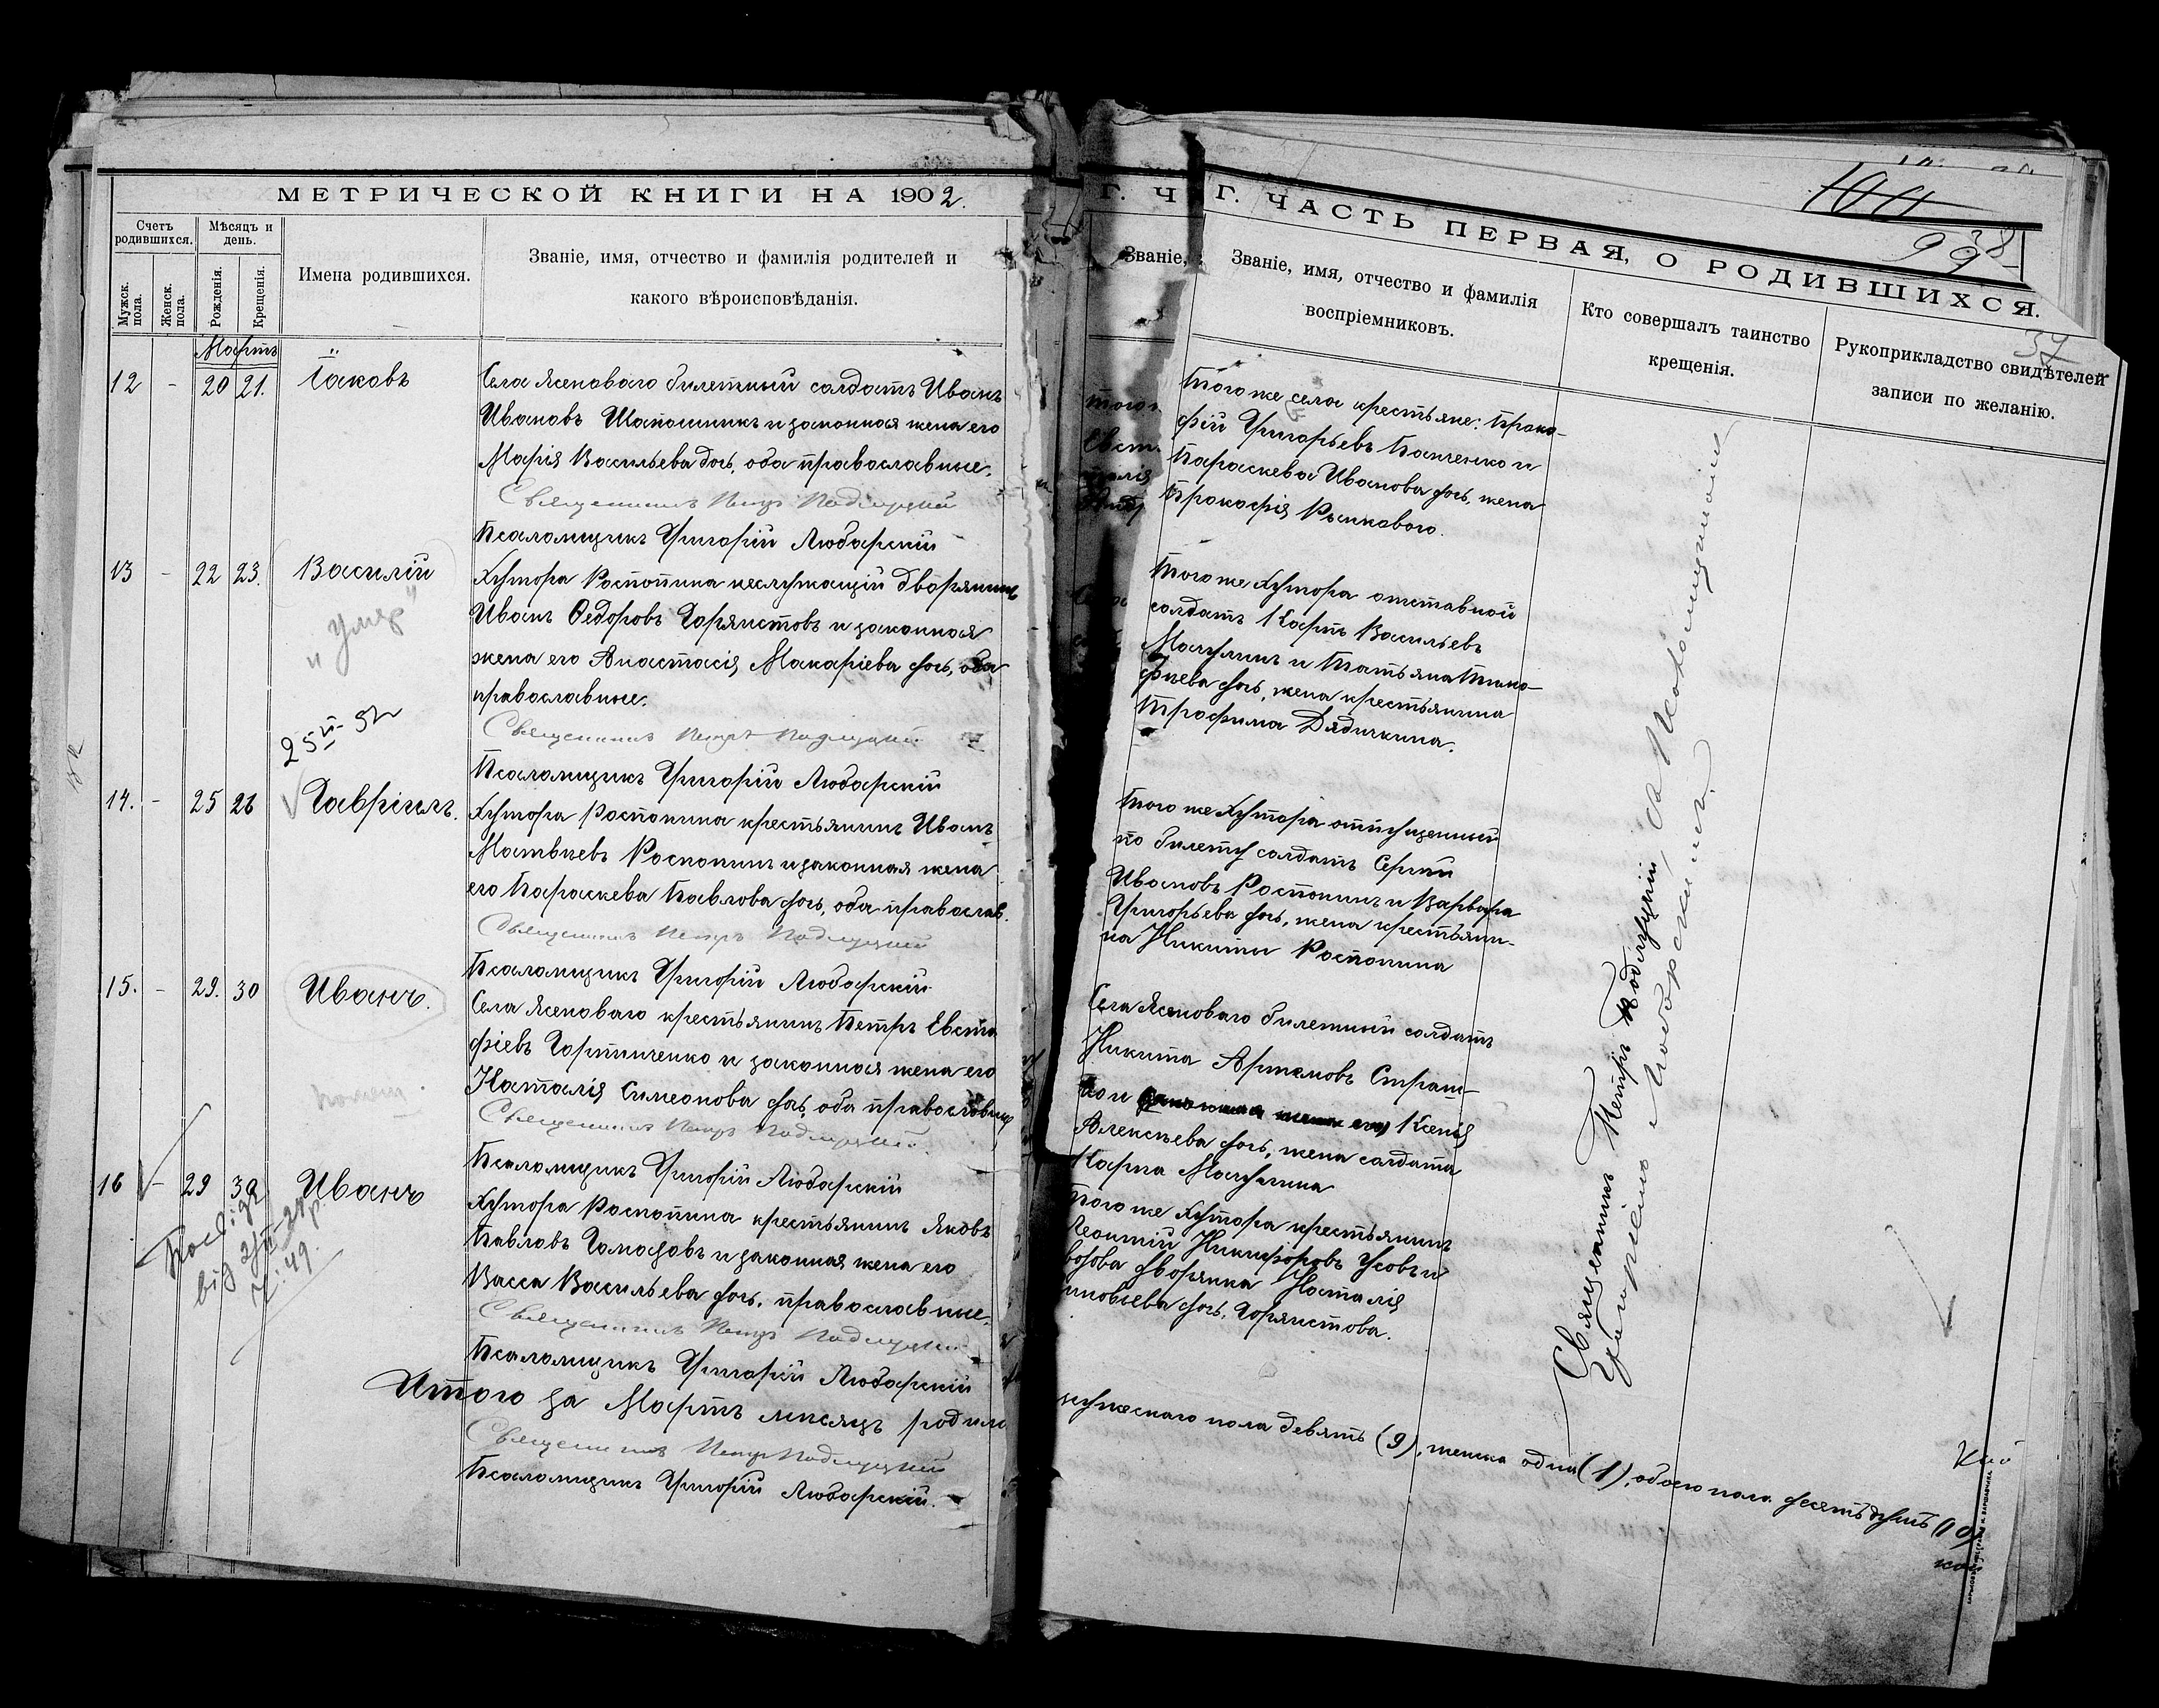 МЕТРИЧЕСКОЙ КНИГИ НА 1902.
Счетъ родившихся.
Мѣсяцъ и день.
Мужск. пола.
Женск. пола.
Рожденія.
Крещенія.
Имена родившихся.
Званіе, имя, отчество и фамилія родителей и
какого вѣроисповѣданія.
Мартъ
12 - 20 21. Іаковъ
Села Ясеноваго билетный солдатъ Иванъ
Ивановъ Шапошникъ и законная жена его
Марія Васильева дочь, оба православные.
Священникъ Петръ Подлуцкій
Псаломщикъ Григорій Любарскій
13 - 22 23. Василій
"умер"
Хутора Роспопина неслужащій дворянинъ
Иванъ Ѳедоровъ Горяистовъ и законная
жена его Анастасія Макаріева дочь, оба
православные.
Священникъ Петръ Подлуцкій
Псаломщикъ Григорій Любарскій
14. - 25 26 Гавріилъ.
Хутора Роспопина крестьянинъ Иванъ
Матвѣевъ Роспопинъ и законная жена
его Параскева Павлова дочь, оба православ.
Священникъ Петръ Подлуцкій
Псаломщикъ Григорій Любарскій
15. - 29. 30 Иванъ.
Села Ясеноваго крестьянинъ Петръ Евста
фіевъ Гортинченко и законная жена его
Наталія Симеонова дочь, оба православные
Священникъ Петръ Подлуцкій
Псаломщикъ Григорій Любарскій
16 - 29 30 Иванъ
Хутора Роспопина крестьянинъ Яковъ
Павловъ Гомозовъ и законная жена его
Васса Васильева дочь, православные.
Священникъ Петръ Подлуцкій
Псаломщикъ Григорій Любарскій
Итого за Мартъ мѣсяцъ родило
Священникъ Петръ Подлуцкій
Псаломщикъ Григорій Любарскій.
Г. Ч
Званіе,
Г. ЧАСТЬ ПЕРВАЯ, О РОДИВШИХСЯ.
38
37
Званіе, имя, отчество и фамилія
воспріемниковъ.
Кто совершалъ таинство
крещенія.
Рукоприкладство свидѣтелей
записи по желанію.
Того же села крестьяне: Проко-
фій Григорьевъ Панченко и
Параскева Иванова дочь, жена
Прокофія
Того же Хутора отставной
солдатъ Карпъ Васильевъ
Мачулинъ и Татьяна Тимо-
фѣева дочь, жена крестьянина
Трофима Дядичкина.
Того же Хутора отпущенный
по билету солдатъ Сергѣй
Ивановъ Роспопинъ и Варвара
Григорьева дочь, жена крестьяни-
на Никиты Роспопина
Села Ясеноваго билетный солдатъ
Никита Артемовъ Страш-
ко и Ксенія
Алексѣева дочь, жена солдата
Карпа Мачулина
Того же Хутора крестьянинъ
Леонтій Никифоровъ Усовъ и
дворянка Наталія
дочь, Горяистова.
Священникъ Петръ Подлуцкій, съ Псаломщикомъ
Григоріемъ Любарскимъ.
мужескаго пола девять (9), женска одна (1), обоего пола десять душъ (10)